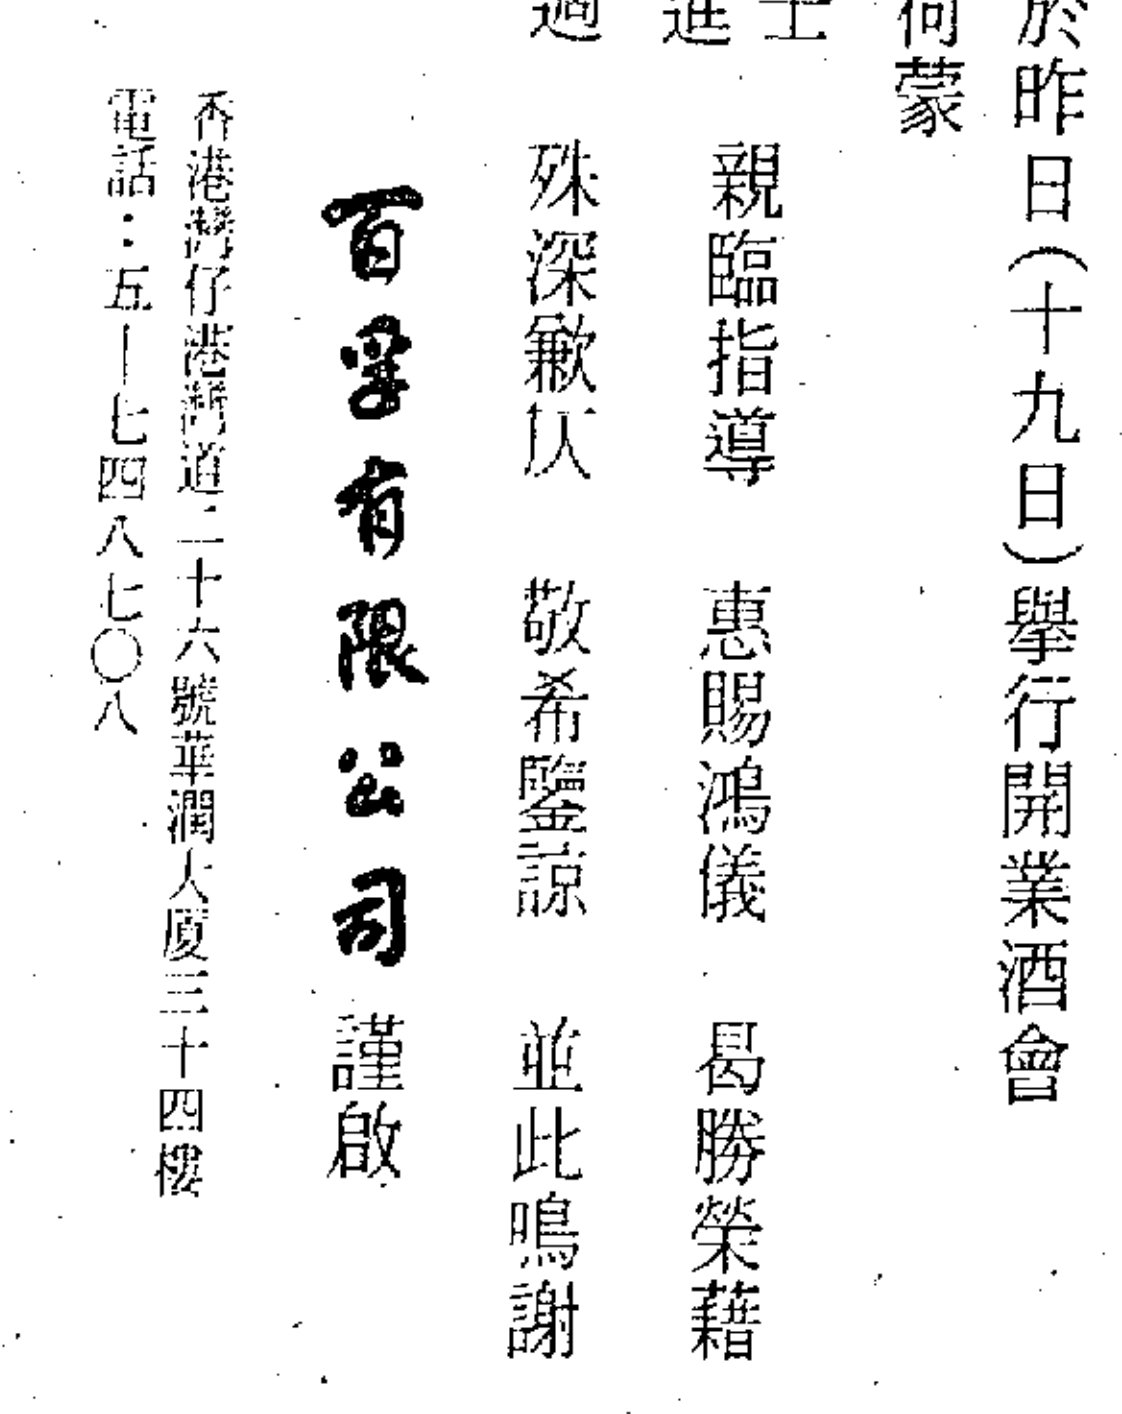 於昨日(十九日)舉行開業酒會
荷蒙
士
進 親臨指導 惠賜鴻儀 曷勝榮藉
週 殊深歉仄 敬希鑒諒 並此鳴謝
百孚有限公司 謹啟
香港灣仔港灣道二十六號華潤大厦三十四樓
電話：五—七四八七〇八